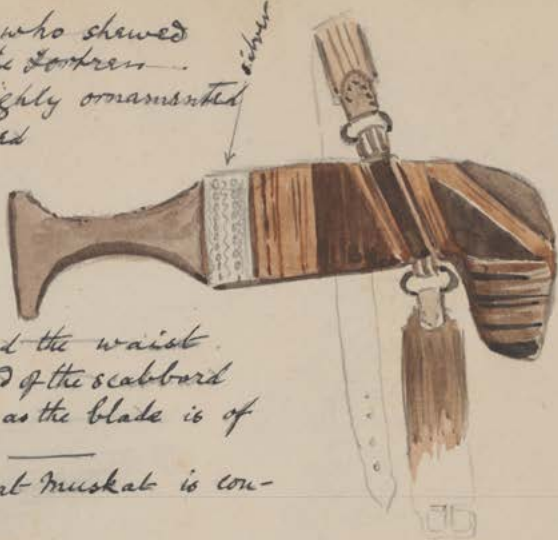 who shewed
silver
te Fortress.
ighly ornamented
ed
d the waist.
d of the scabbard
as the blade is of
at Muskat is con-